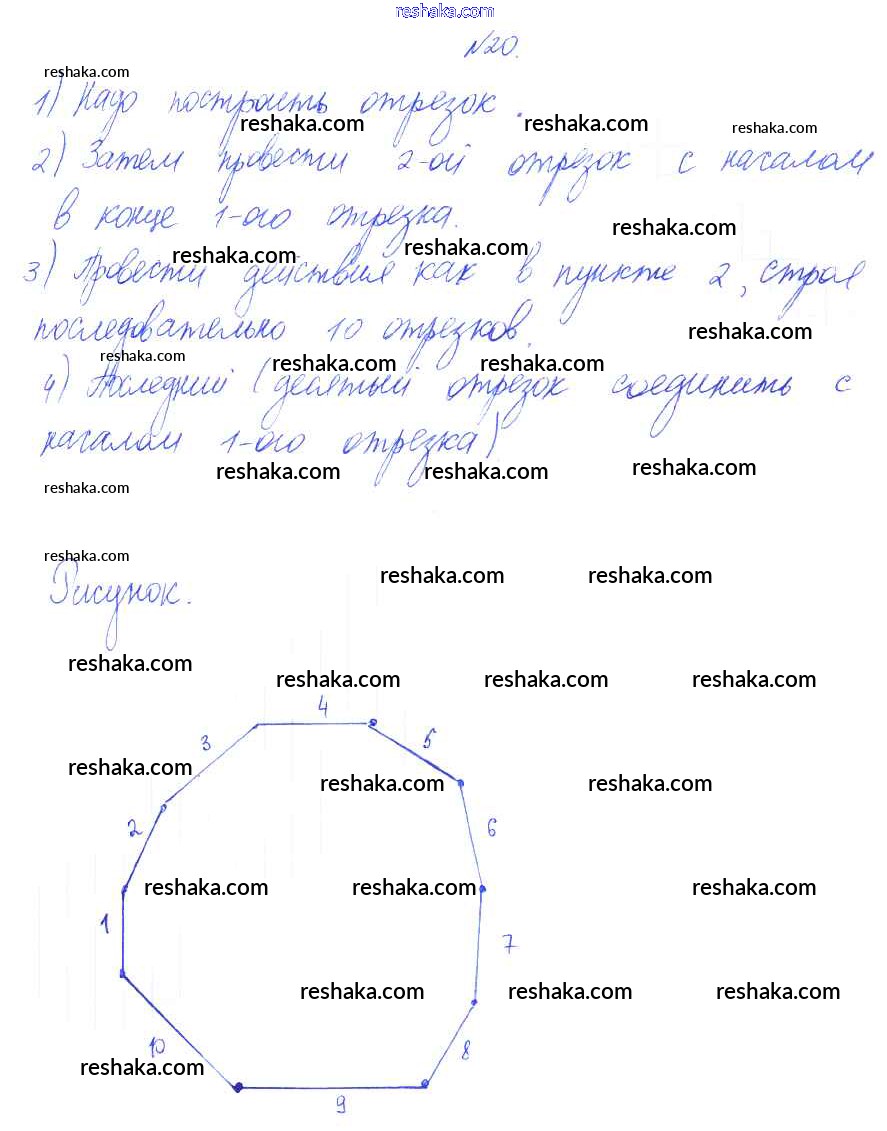 reshaka.com
№20.
reshaka.com
1) Надо построить отрезок.
reshaka.com reshaka.com reshaka.com
2) Затем провести 2-ой отрезок с началом
в конце 1-ого отрезка.
reshaka.com
reshaka.com reshaka.com
3) Провести действия как в пункте 2, строя
последовательно 10 отрезков.
reshaka.com
reshaka.com reshaka.com reshaka.com
4) Последний (десятый отрезок соединить с
началом 1-ого отрезка)
reshaka.com reshaka.com reshaka.com
reshaka.com
reshaka.com
reshaka.com reshaka.com
Рисунок.
reshaka.com
reshaka.com reshaka.com reshaka.com
4
3
5
reshaka.com
reshaka.com reshaka.com
2
6
reshaka.com reshaka.com reshaka.com
1
7
reshaka.com reshaka.com reshaka.com
10
8
reshaka.com
9